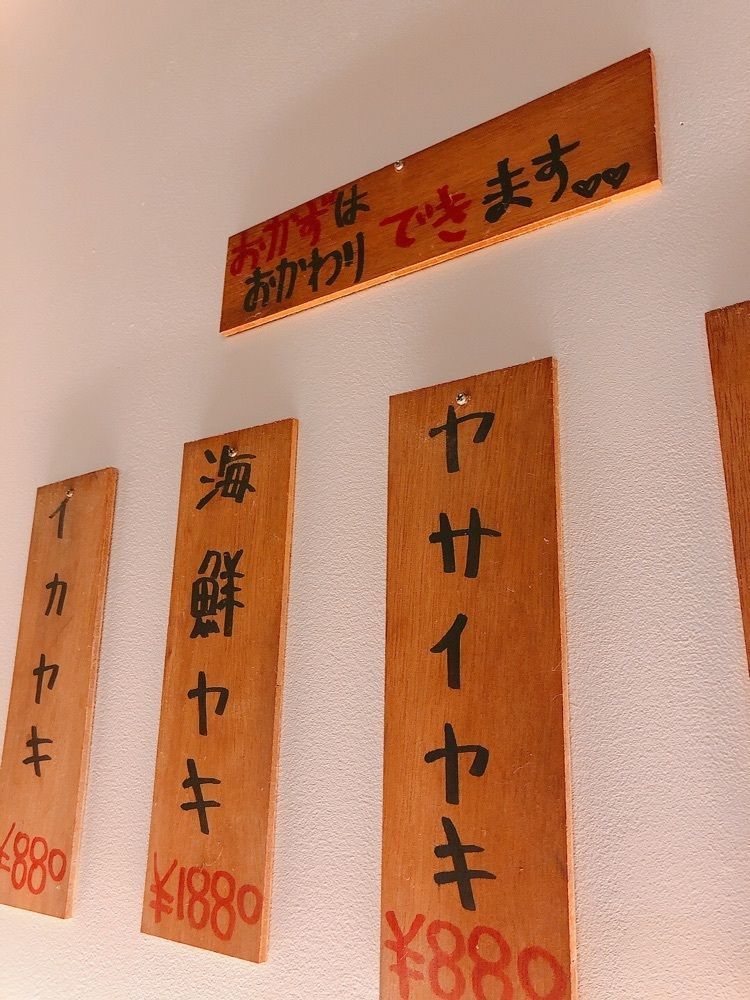 おかずは
おかわり できます♡♡
ヤサイヤキ
¥880
海鮮ヤキ
¥1880
イカヤキ
¥880